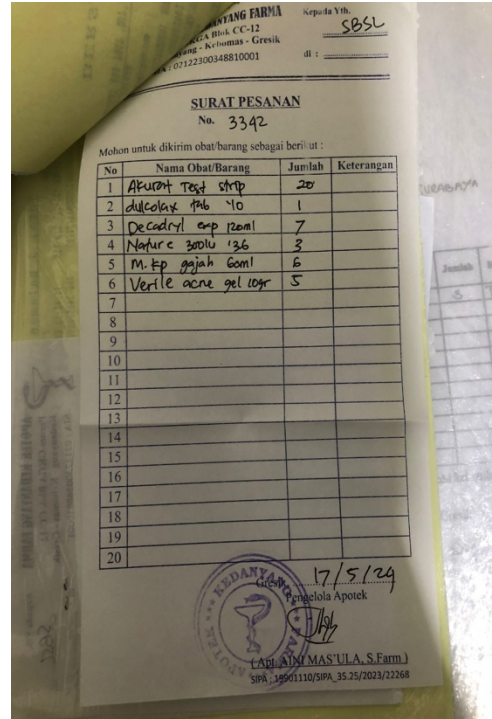 ANYANG FARMA
Kepada Yth.
GA Blok CC-12
SBSL
ang - Kebomas - Gresik
di :
: 02122300348810001
SURAT PESANAN
No. 3342
Mohon untuk dikirim obat/barang sebagai berikut :
No Nama Obat/Barang Jumlah Keterangan
1 Akurat Test strip 20
2 dulcolax tab '10 1
3 Decadryl exp 120ml 7
4 Nature 300iu '36 3
5 M. kp gajah 60ml 6
6 Verile acne gel 10gr 5
7
8
9
10
11
12
13
14
15
16
17
18
19
20
Gresik 17/5/24
Pengelola Apotek
APOTEK KEDANYANG FARMA
( Apt. AINI MAS'ULA, S.Farm )
SIPA : 19901110/SIPA_35.25/2023/22268
SURABAYA
Jumlah
3